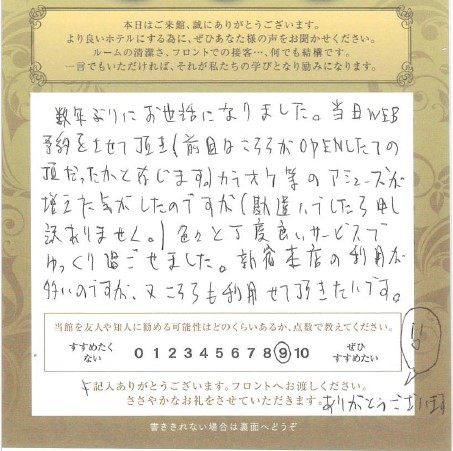 本日はご来館、誠にありがとうございます。
より良いホテルにする為に、ぜひあなた様の声をお聞かせください。
ルームの清潔さ、フロントでの接客…、何でも結構です。
一言でもいただければ、それが私たちの学びとなり励みになります。
数年ぶりにお世話になりました。当日WEB
予約をさせて頂き(前回はこちらがOPENしたての
頃だったかと存じます。)カラオケ等のアミューズが
増えた気がしたのですが(勘違いでしたら申し
訳ありません。)色々と丁度良いサービスで
ゆっくり過ごせました。新宿本店の利用が
多いのですが、又こちらも利用させて頂きたいです。
当館を友人や知人に勧める可能性はどのくらいあるか、点数で教えてください。
すすめたくない 0 1 2 3 4 5 6 7 8 9 10 ぜひすすめたい
ご記入ありがとうございます。フロントへお渡しください。
ささやかなお礼をさせていただきます。
!!
ありがとうございます
書ききれない場合は裏面へどうぞ